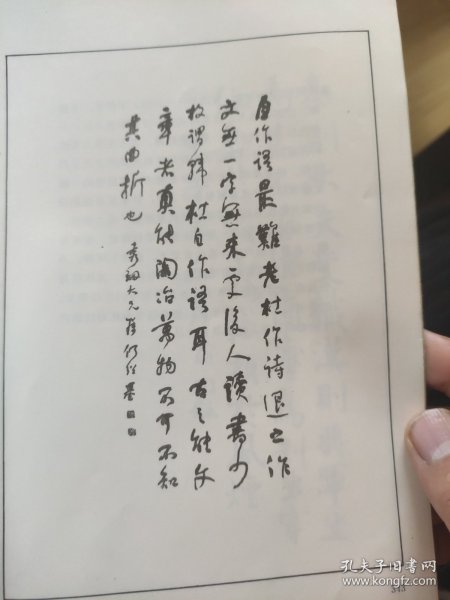 自作语最難老杜作诗退之作
文無一字無来处後人讀書少
故谓韩杜自作语耳古之能文
章者真能陶冶萬物不可不知
其曲折也
大兄
何绍基
343
孔夫子旧书网
www.kongfz.com